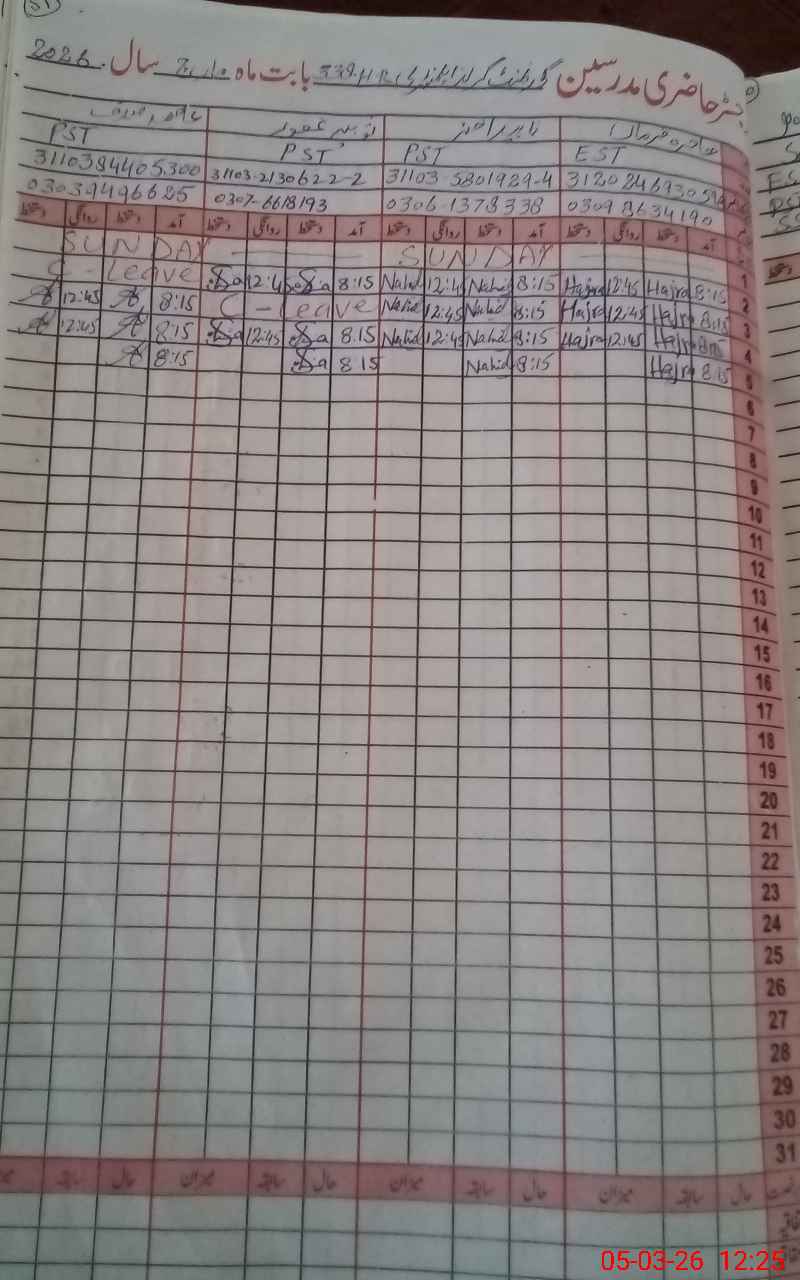 رجسٹر حاضری مدرسین گورنمنٹ گرلز ایلیمنٹری 339.HR بابت ماہ مارچ سال 2026
PST PST PST EST
3110384405300 31103-2130622-2 31103-5801929-4
03039496625 0307-6618193 0306-1378338 03098634190
آمد دستخط روانگی دستخط آمد دستخط روانگی دستخط آمد دستخط روانگی دستخط آمد دستخط روانگی دستخط
SUNDAY SUNDAY 1
C-Leave 12:45 8:15 Nahid 12:45 Nahid 8:15 Hajra 12:45 Hajra 8:15 2
12:45 8:15 C-Leave Nahid 12:45 Nahid 8:15 Hajra 12:45 Hajra 8:15 3
12:45 8:15 12:45 8.15 Nahid 12:45 Nahid 8:15 Hajra 12:45 Hajra 8:15 4
8:15 8.15 Nahid 8:15 Hajra 8.15 5
6
7
8
9
10
11
12
13
14
15
16
17
18
19
20
21
22
23
24
25
26
27
28
29
30
31
حال سابقہ میزان حال سابقہ میزان حال سابقہ میزان حال سابقہ
05-03-26 12:25